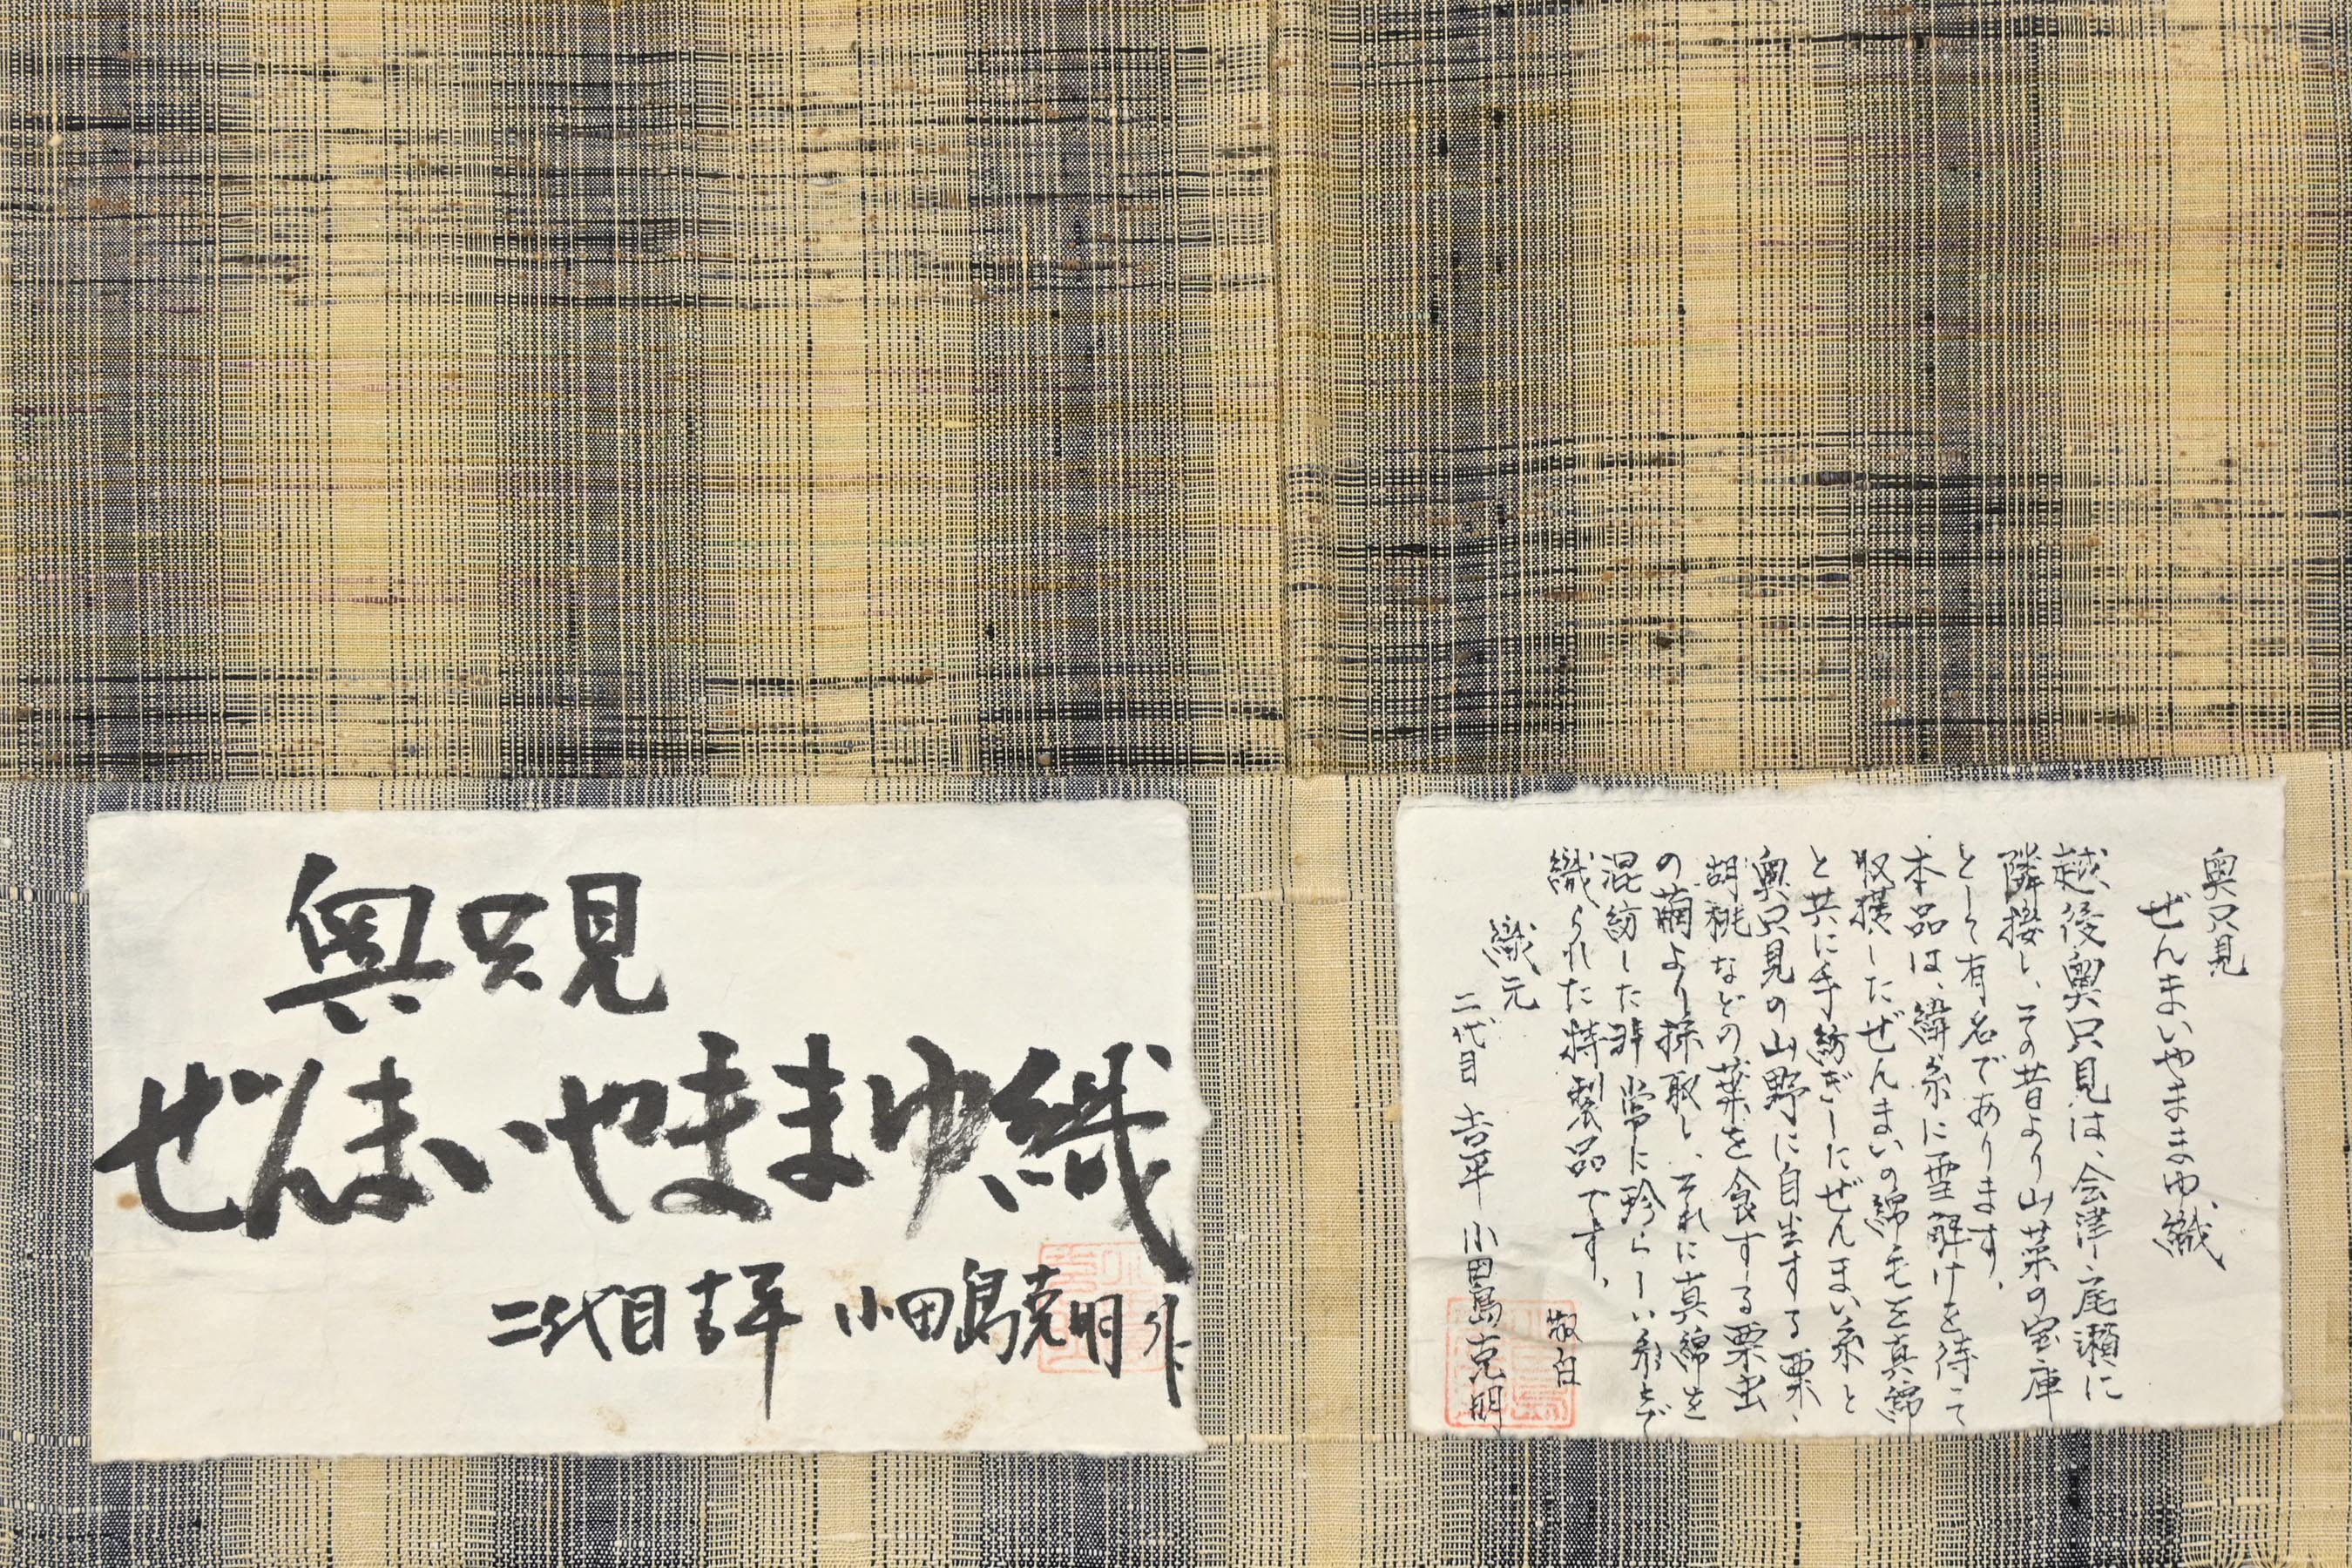 奥只見
ぜんまいやままゆ織
二代目 吉平 小田島克明 作
奥只見
ぜんまいやままゆ織
越後奥只見は、会津、尾瀬に
隣接し、その昔より山菜の宝庫
として有名であります。
本品は、緯糸に雪解けを待って
収獲したぜんまいの綿毛を真綿
と共に手紡ぎしたぜんまい糸と
奥只見の山野に自生する栗、
胡桃などの葉を食する栗虫
の繭より採取し、それに真綿を
混紡した非常に珍らしい糸とで
織られた特製品です。
敬白
織元
二代目 吉平 小田島克明